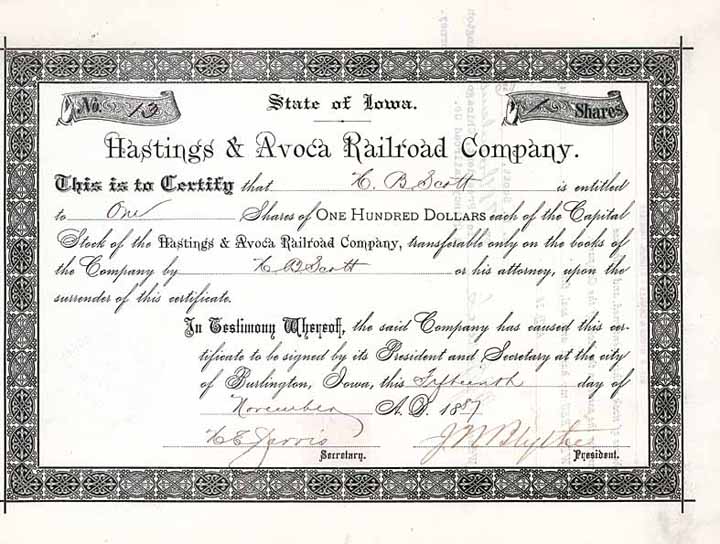 No. 13
State of Iowa.
1 Shares
Hastings & Avoca Railroad Company.
This is to Certify that H. B Scott is entitled
to One Shares of ONE HUNDRED DOLLARS each of the Capital
Stock of the Hastings & Avoca Railroad Company, transferable only on the books of
the Company by H B Scott or his attorney, upon the
surrender of this certificate.
In Testimony Whereof, the said Company has caused this cer-
tificate to be signed by its President and Secretary at the city
of Burlington, Iowa, this Fifteenth day of
November A. D. 1887
H E Jarvis J W Blythe
Secretary. President.